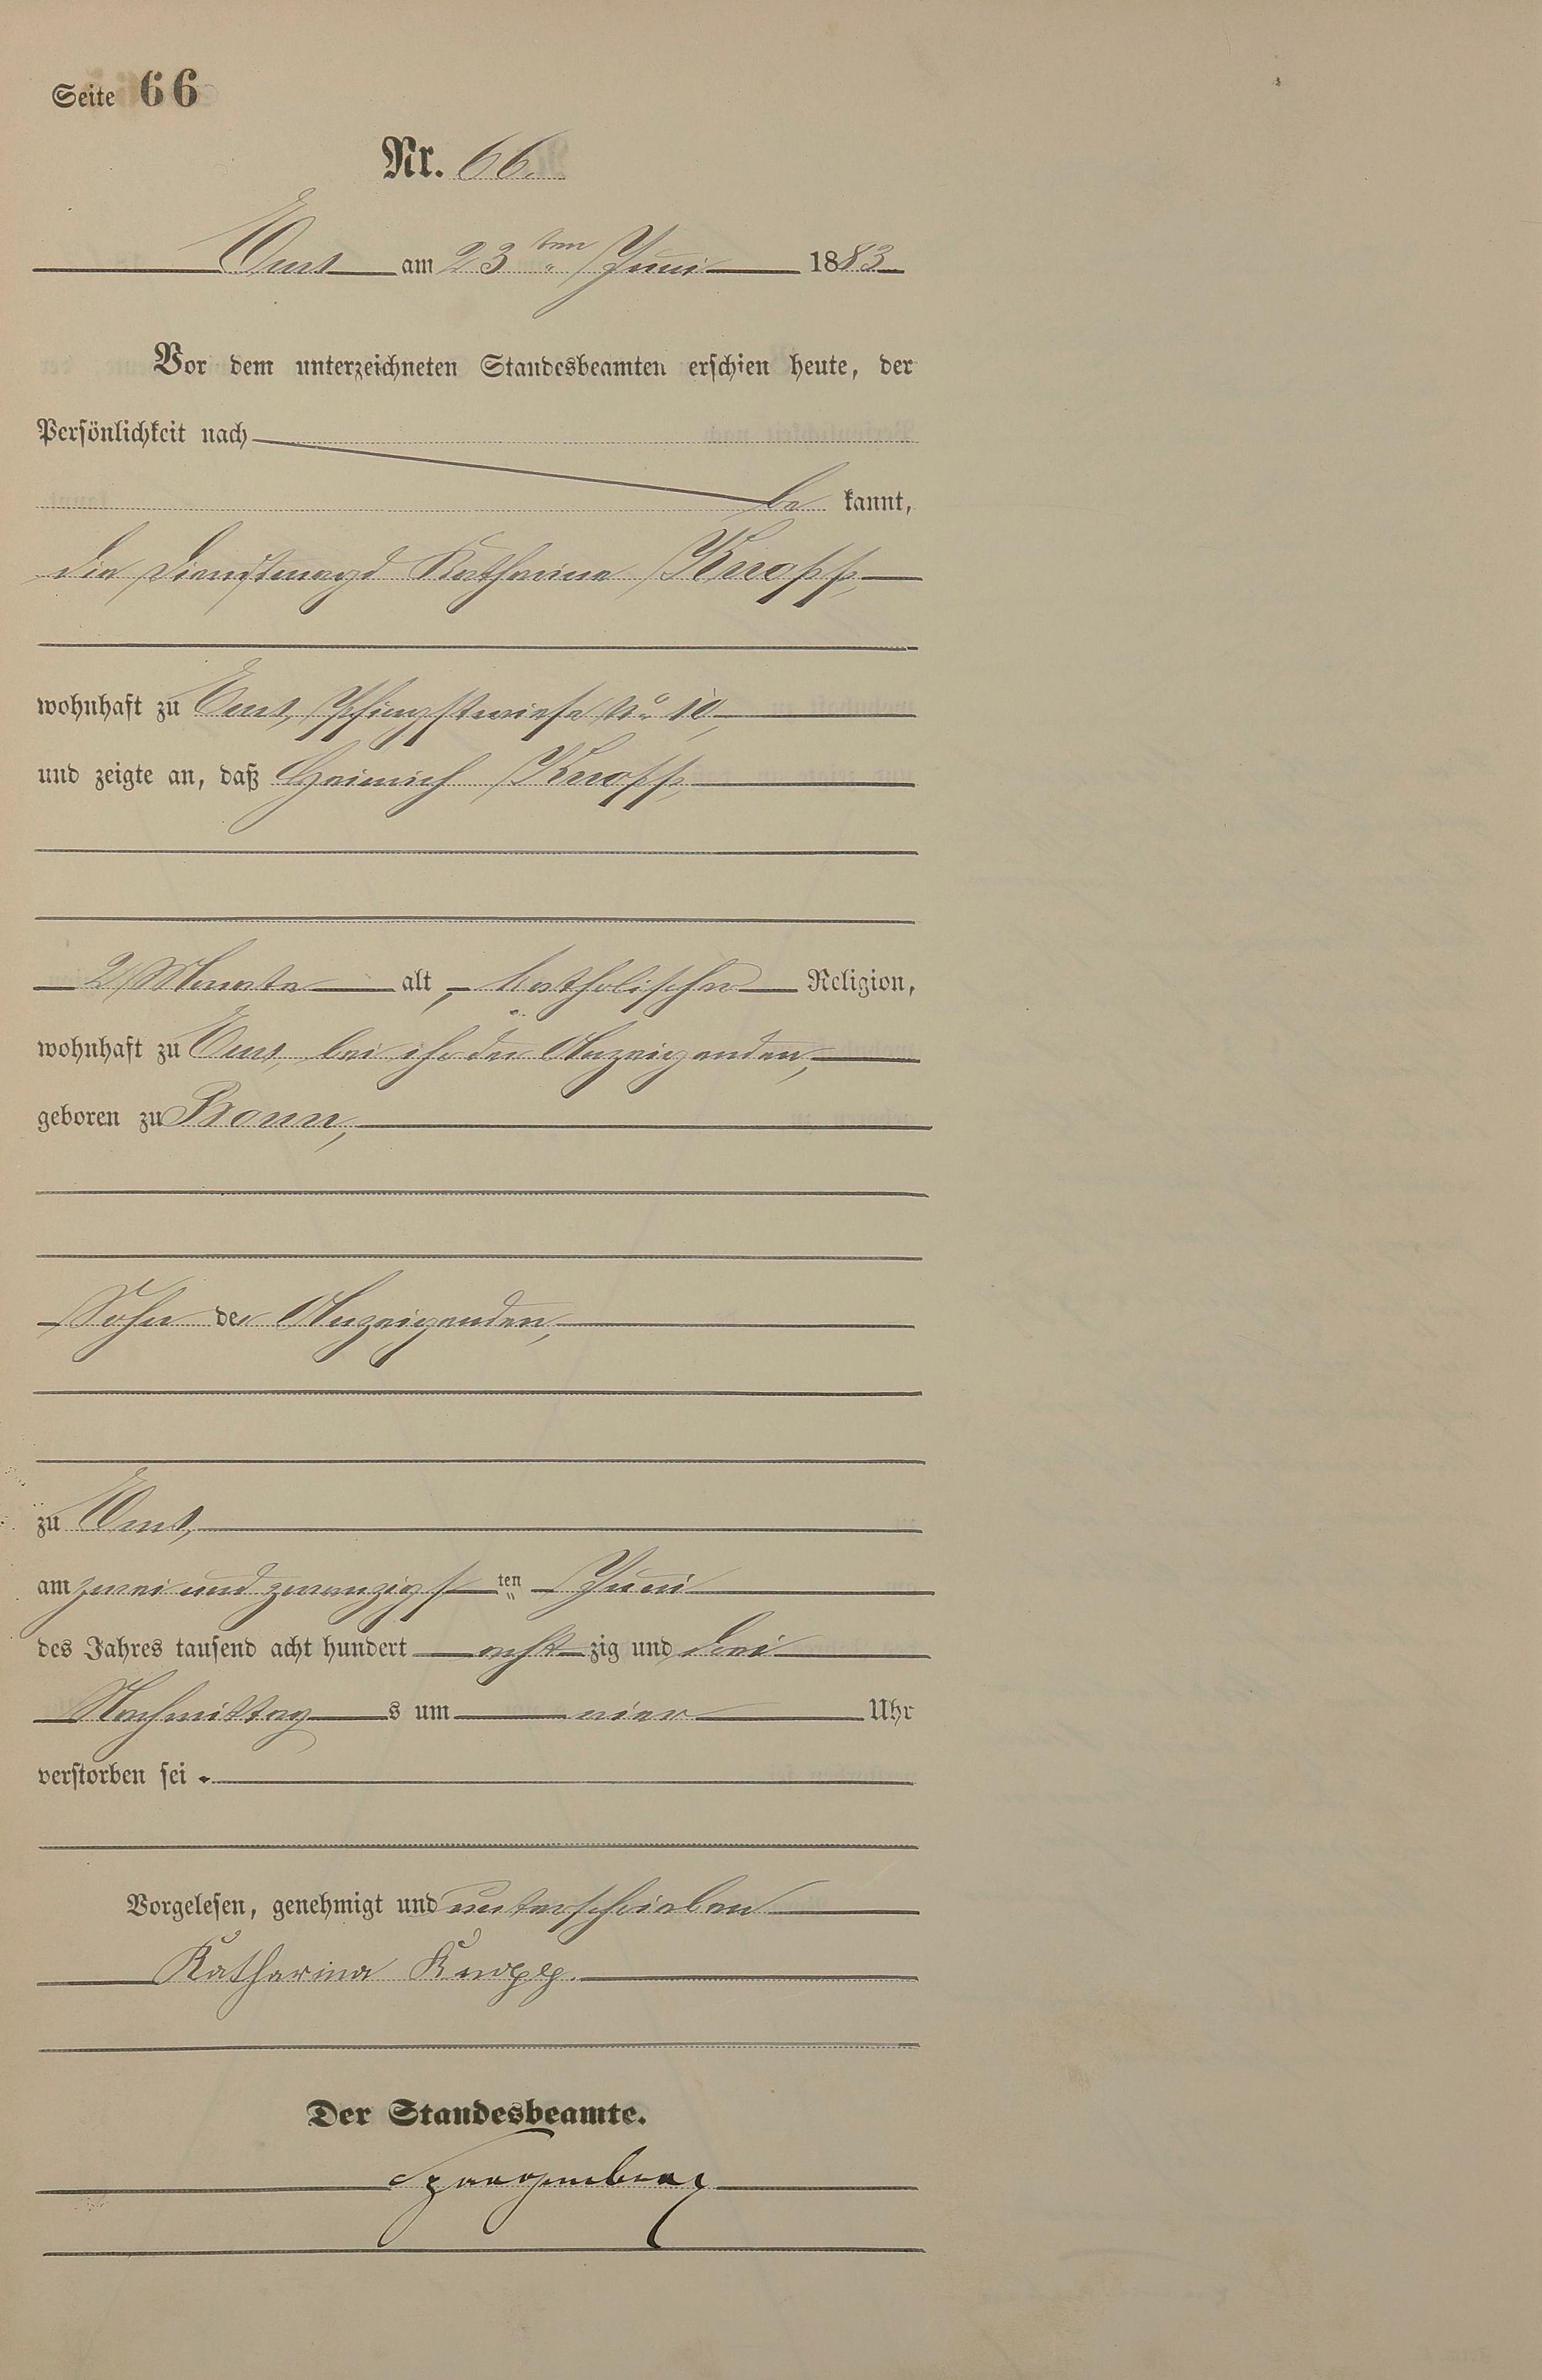 Seite 66
Nr. 66.
Ems am 23ten Juni 1883
Vor dem unterzeichneten Standesbeamten erschien heute, der
Persönlichkeit nach
be kannt,
die Dienstmagd Katharina Knopp,
wohnhaft zu Ems, Pfingstwiese No 10,
und zeigte an, daß Heinrich Knopp,
2 Monate alt, katholischer Religion,
wohnhaft zu Ems, bei ihr der Anzeigenden,
geboren zu Bonn,
Sohn der Anzeigenden,
zu Ems,
am zwei und zwanzigsten Juni
des Jahres tausend acht hundert achtzig und drei
Nachmittags um vier Uhr
verstorben sei.
Vorgelesen, genehmigt und unterschrieben
Katharina Knopp.
Der Standesbeamte.
Spangenberg